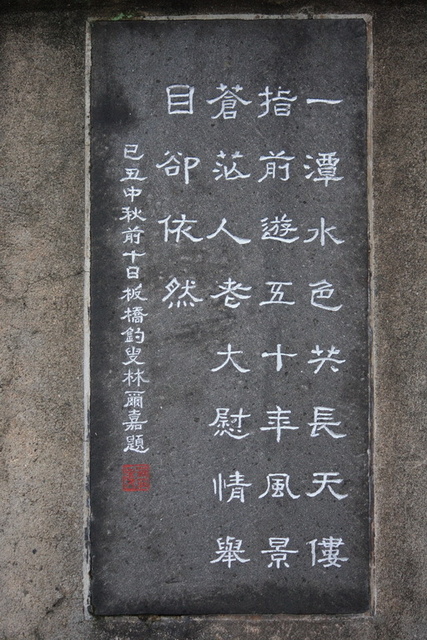 一潭水色共長天僂
指前遊五十年風景
蒼茫人老大慰情舉
目卻依然
己丑中秋前十日板橋釣叟林爾嘉題